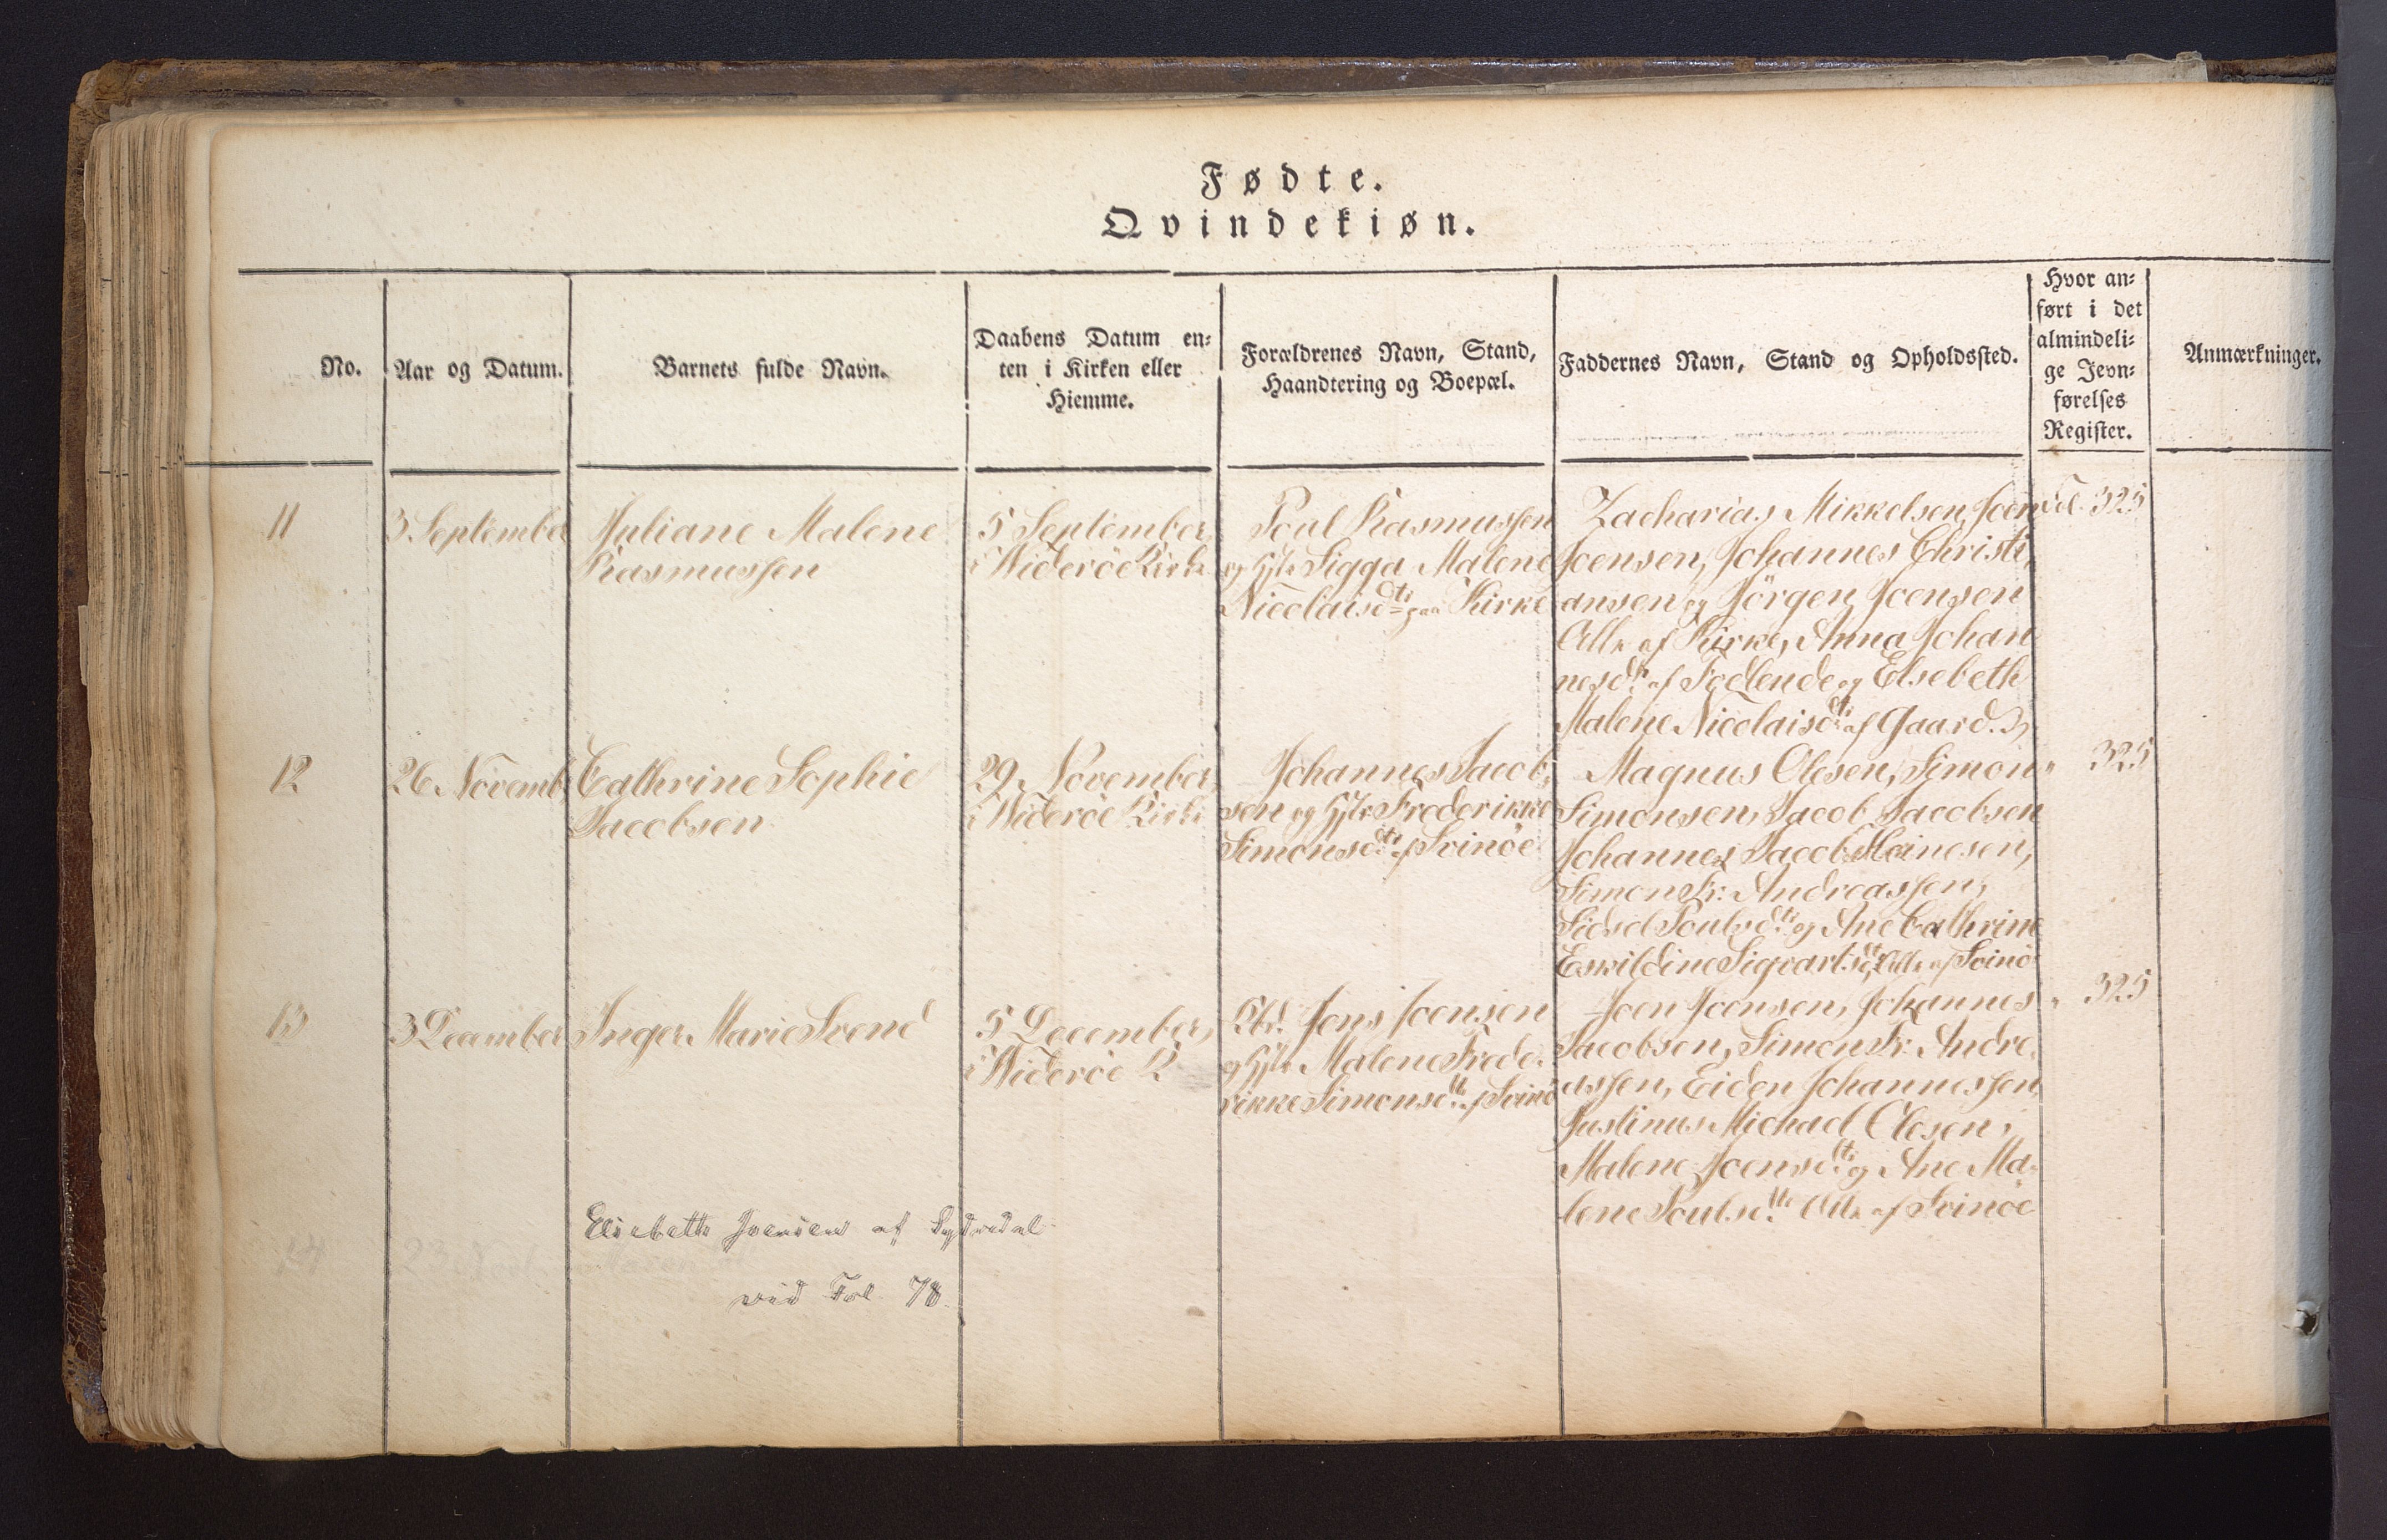 Fødte.
Qvindekiøn.
No.
Aar og Datum.
Barnets fulde Navn.
Daabens Datum en-
ten i Kirken eller
Hiemme.
Forældrenes Navn, Stand,
Haandtering og Boepæl.
Faddernes Navn, Stand og Opholdssted.
Hvor an-
ført i det
almindeli-
ge Jevn-
førelses
Register.
Anmærkninger.
11
3 September
Juliane Malene
Rasmussen
5 September,
i Wideröe Kirke
Poul Rasmussen
og Hst Sigga Malene
Nicolaisdtr paa Kirke
Zacharias Mikkelsen, Joen
Joensen, Johannes Christi-
ansen og Jörgen Joensen
Alle af Kirke, Anna Johan
nesdtr af og Elsebeth
Malene Nicolaisdtr af Gaard.
Fol. 325
12
26 Novemb.
Cathrine Sophie
Jacobsen
29 November,
i Wideröe Kirke
Johannes Jacob-
sen og Hst Frederikke
Simonsdtr af Svinöe
Magnus Olesen, Simon
Simonsen, Jacob Jacobsen
Johannes Jacob Heinesen,
Simon Fr. Andreassen,
Sidsel Poulsdtr og Ane Cathrine
Eskildine Sigvartsdtr, Alle af Svinö
" 325
13
3 December
Inger Marie Svend
5 December,
i Wideröe K
Jens Joensen
og Hst Malene Frede-
rikke Simonsdtr af Svinö
Joen Joensen, Johannes
Jacobsen, Simon Fr. Andre-
assen, Eiden Johannessen,
Justinus Michael Olesen,
Malene Joensdtr og Ane Ma-
lene Poulsdtr Alle af Svinöe
" 325
14
23
Maren
Elsebeth Joensen af
vid Fol. 78.